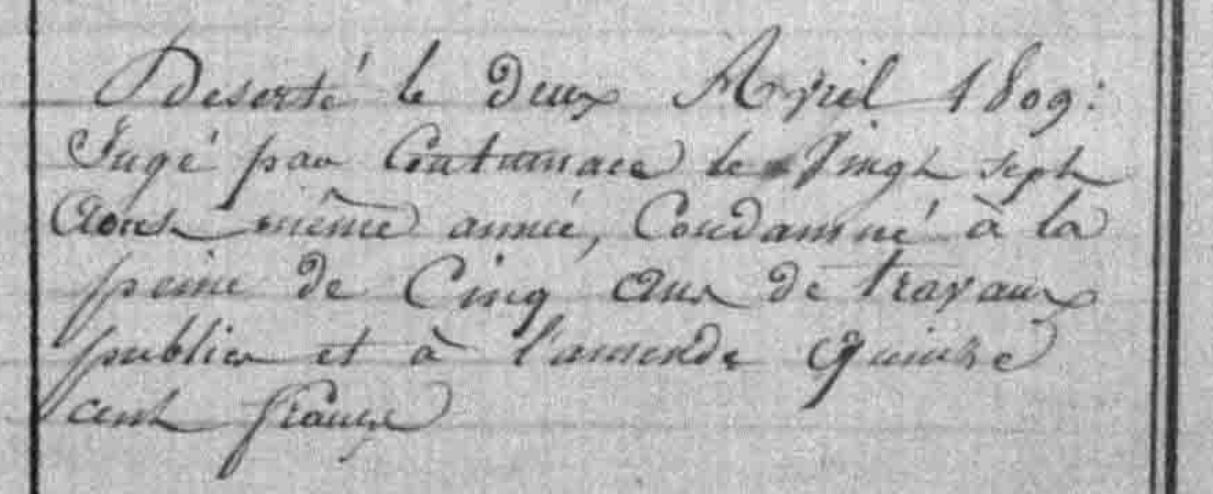 Deserté le deux Avril 1809:
Jugé par Contumace le Vingt sept
Aoust même année, Condamné à la
peine de Cinq ans de travaux
publics et à l'amende quinze
cent francs